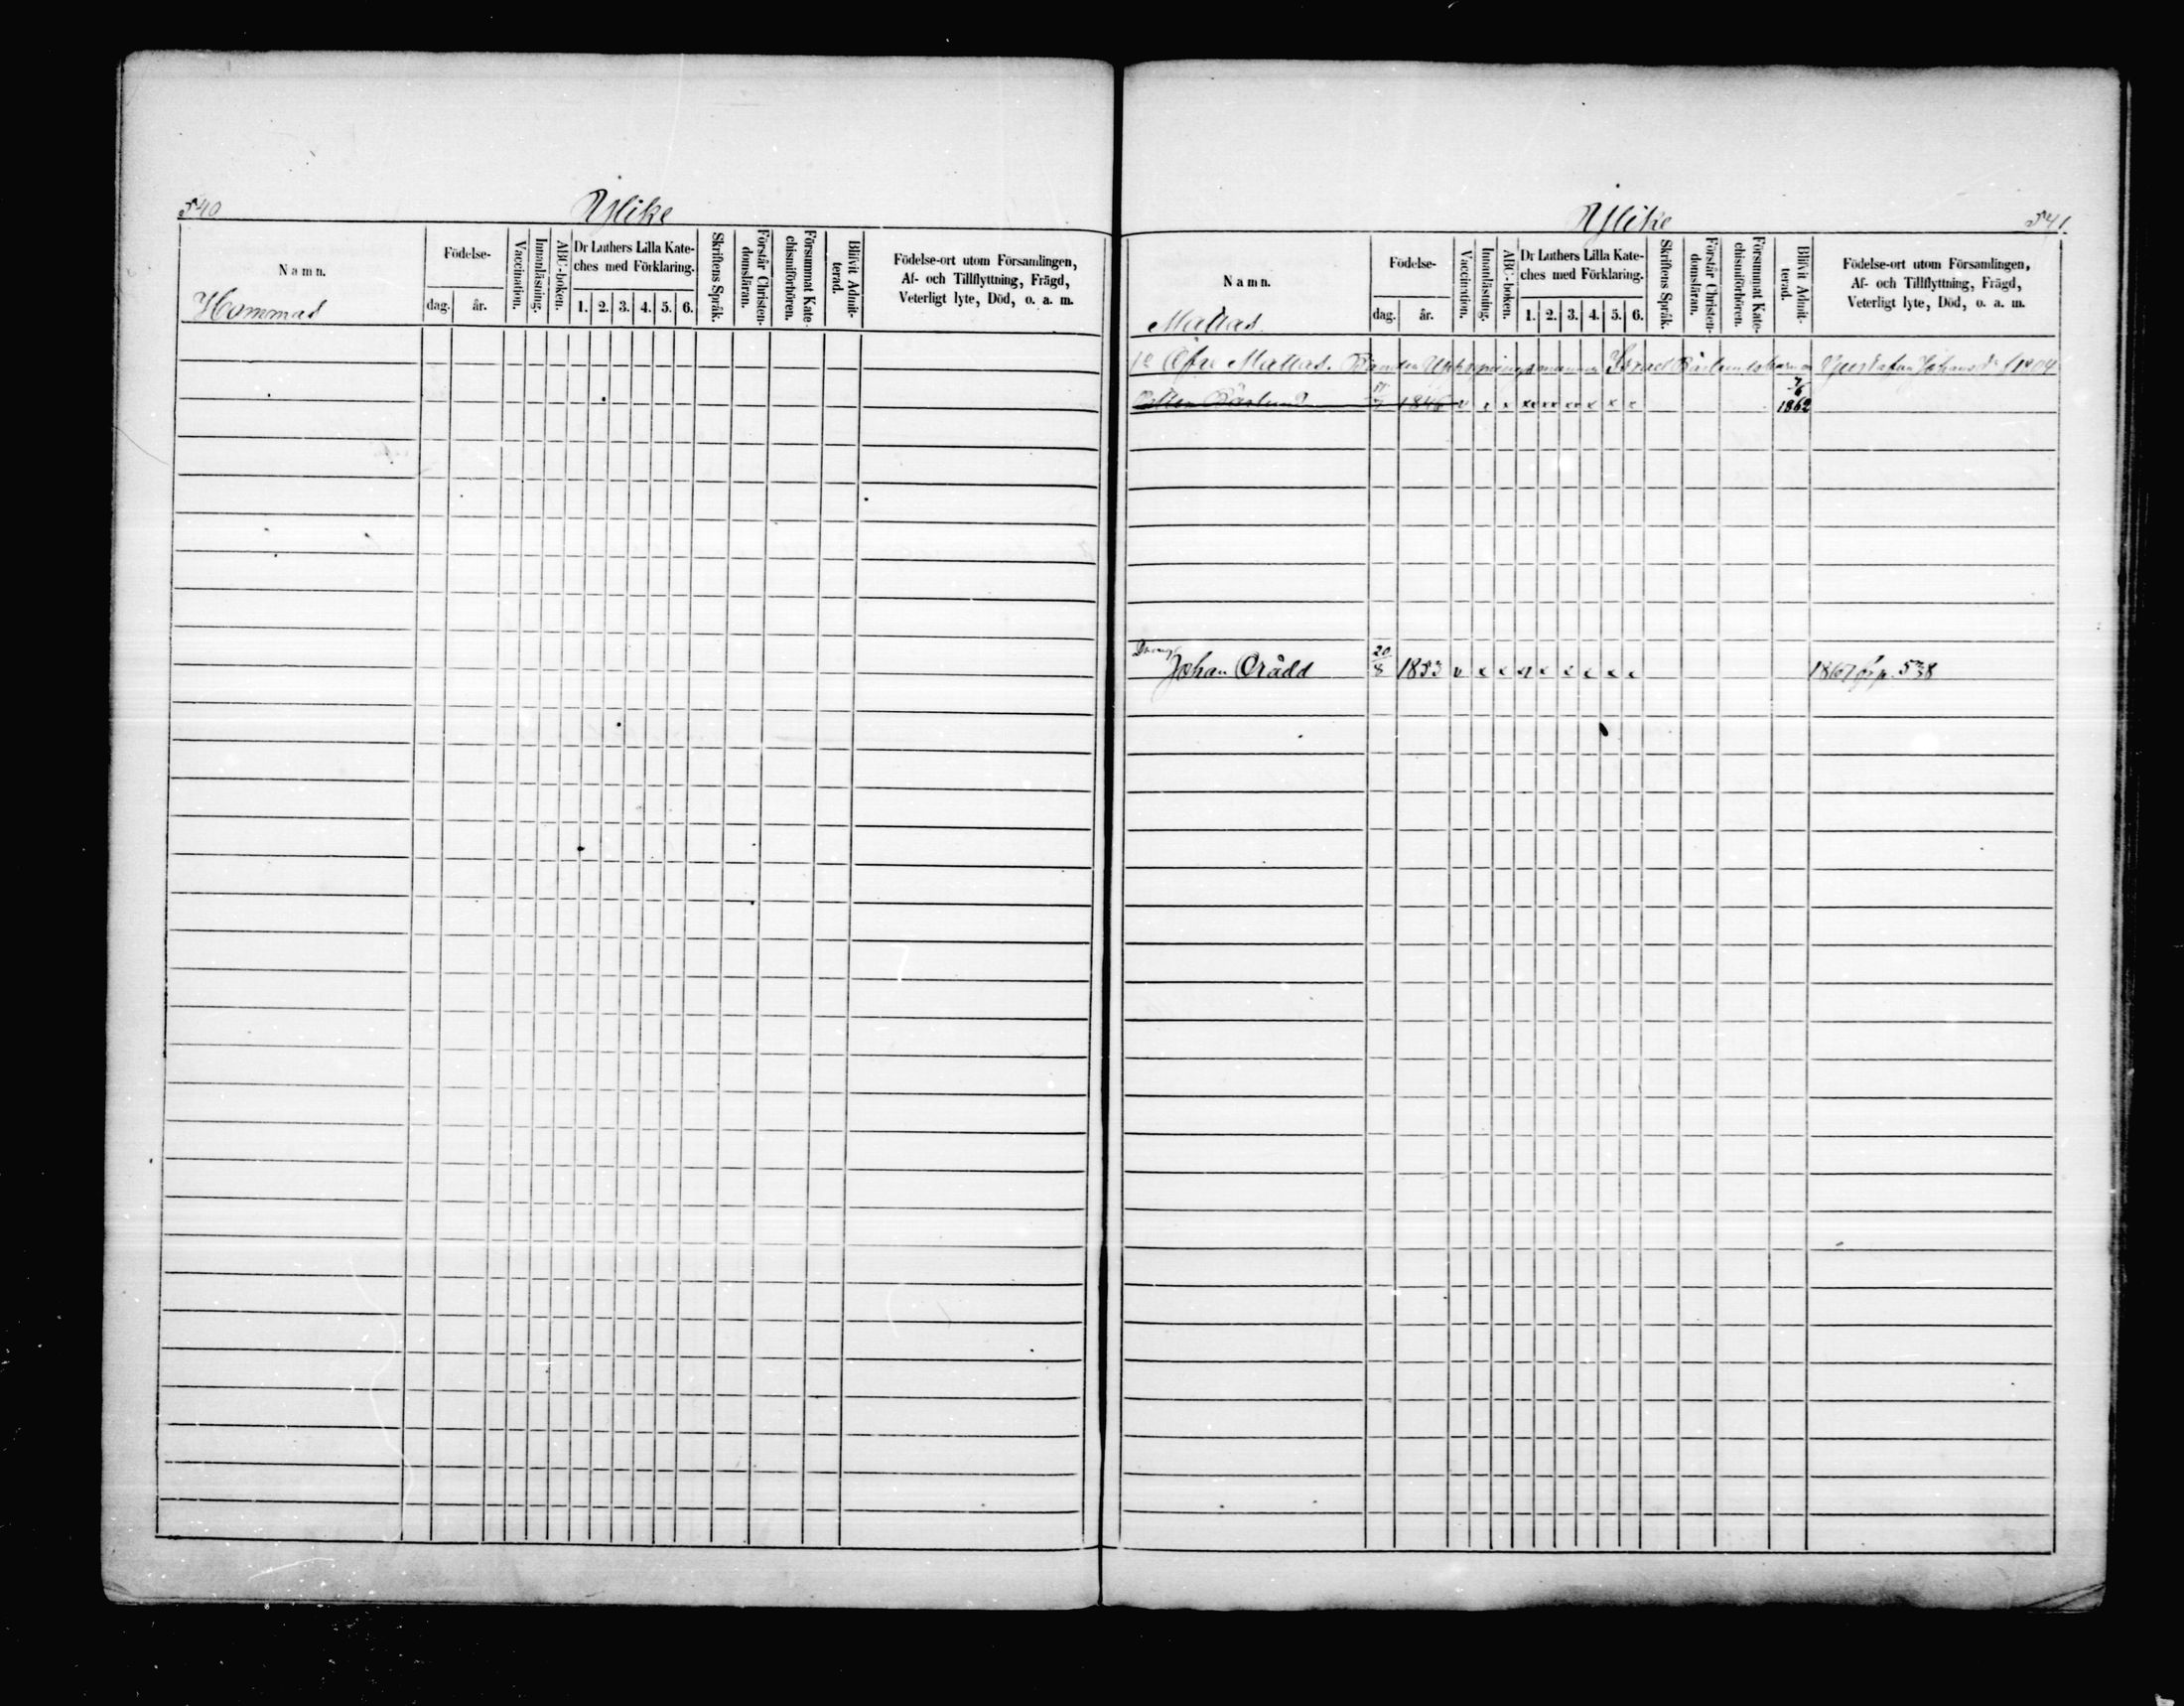 540
Ylike
Namn.
Hammas
Födelse-
dag.
år.
Vaccination.
Innanläsning.
ABC-boken.
Dr Luthers Lilla Kate-
ches med Förklaring.
1. 2. 3. 4. 5. 6.
Skriftens Språk.
Förstår Christen-
domsläran.
Försummat Kate-
chismiförhören.
Blifvit Admit-
terad.
Födelse-ort utom Församlingen,
Af- och Tillflyttning, Frägd,
Veterligt lyte, Död, o. a. m.
Ylike
541.
Namn.
Mattas.
Födelse-
dag.
år.
Vaccination.
Innanläsning.
ABC-boken.
Dr Luthers Lilla Kate-
ches med Förklaring.
1. 2. 3. 4. 5. 6.
Skriftens Språk.
Förstår Christen-
domsläran.
Försummat Kate-
chismiförhören.
Blifvit Admit-
terad.
Födelse-ort utom Församlingen,
Af- och Tillflyttning, Frägd,
Veterligt lyte, Död, o. a. m.
Öfre Mattas. Bonden Israel
1846 1862
Johan Orådd 20/8 1853 v x x x x x x x x 1867 p. 538